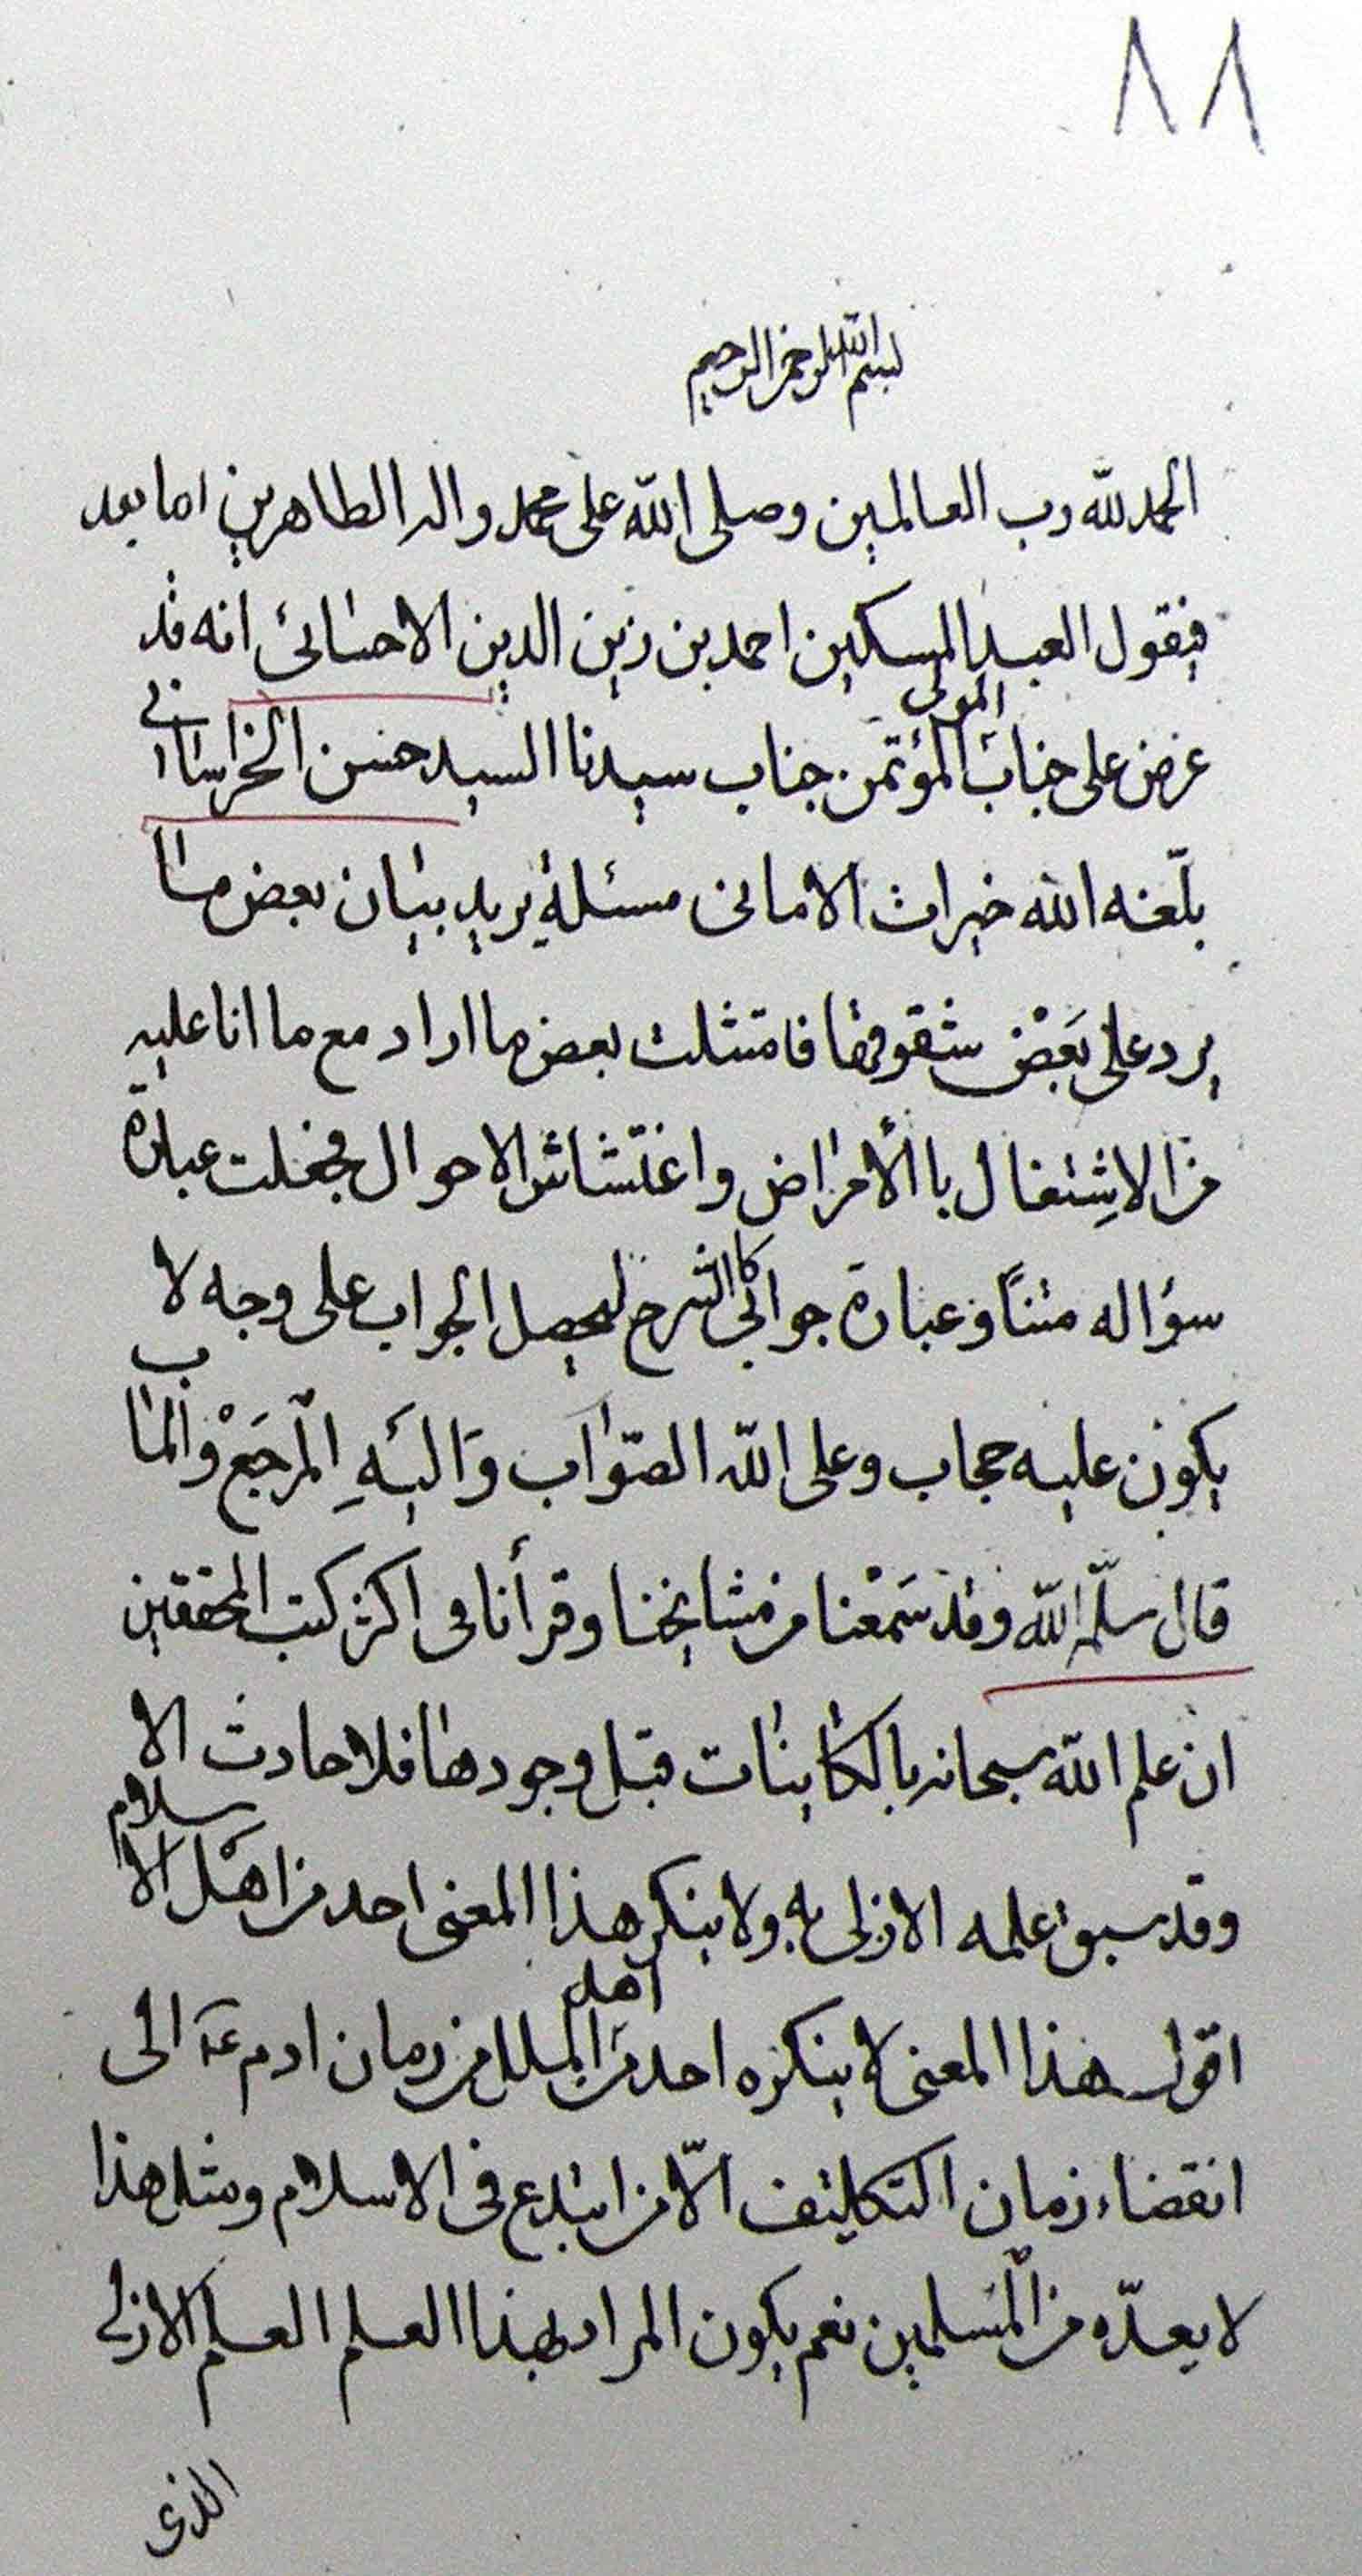 ٨٨
بسم الله الرحمن الرحيم
الحمد لله رب العالمين وصلى الله على محمد واله الطاهرين اما بعد
فيقول العبد المسكين احمد بن زين الدين الاحسائى انه قد
عرض على جناب المولى المؤتمن جناب سيدنا السيد حسن الخراسانى
بلّغه الله خيرات الامانى مسئلة يريد بيان بعض ما
يرد على بَعْض شقوقها فامتثلت بعض ما اراد مع ما انا عليه
من الاشتغال بالأمراض واغتشاش الاحوال فجعلت عبارة
سؤاله متناً وعبارة جوابى كالشرح ليحصل الجواب على وجه لا
يكون عليه حجاب وعلى الله الصّواب وَاليَهِ المرجَعْ والماب
قال سلّمه الله وقد سَمْعنا من مشايخنا وقرأنا فى اكثر كتب المحققين
ان علم الله سبحانه بالكاينات قبل وجودها فلا حادث الا
وقد سبق علمه الازلى به ولا ينكر هذا المعنى احد من اهْل الاسلام
اقول هذا المعنى لا ينكره احد من اهل الملل من زمان ادم ع الى
انقضاء زمان التكليف الّا من ابتدع فى الاسلام ومثل هذا
لا يعدّه من المُسلمين نعم يكون المراد بهذا العلم العلم الازلى
الذى